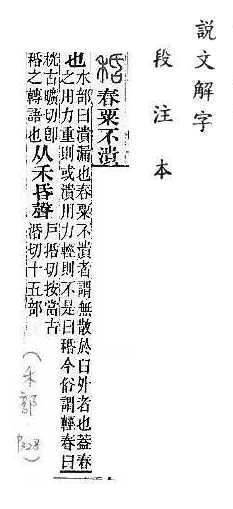 說文解字
段注本
舂粟不潰
也
水部曰潰漏也舂粟不潰者謂無散於臼外者也葢舂
之用力重則或潰用力輕則不是曰秳今俗謂輕舂曰
桄古曠切卽
秳之轉語也
从禾昏聲
戶括切按當古
活切十五部
(禾部
P328)